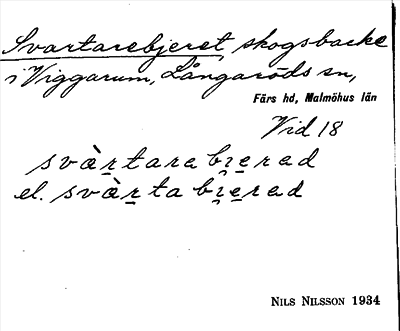 Svartarebjeret, skogsbacke
i Viggarum, Långaröds sn,
Färs hd, Malmöhus län
Vid 18
svàr̲tarebi̯e̲rad
el. svàr̲ta bi̯e̲rad
NILS NILSSON 1934